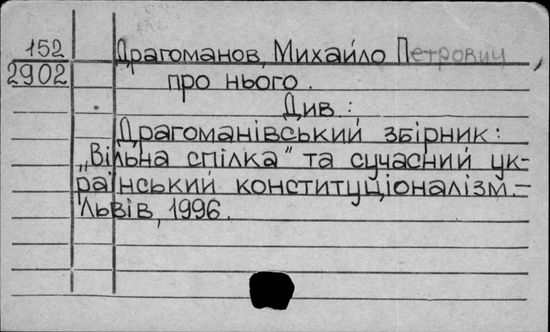 152 Драгоманов, Михайло Петрович,
2902 про нього.
Див.:
Драгоманівський збірник:
„Вільна спілка" та сучасний ук-
раїнський конституціоналізм.–
Львів, 1996.